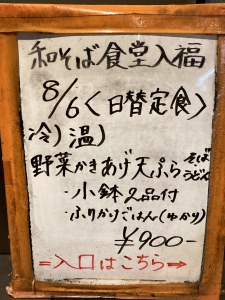 和そば食堂入福
8/6<日替定食>
冷)温)
野菜かきあげ天ぷらそばうどん
・小鉢2品付
・ふりかけごはん(ゆかり)
¥900-
=入口はこちら➡